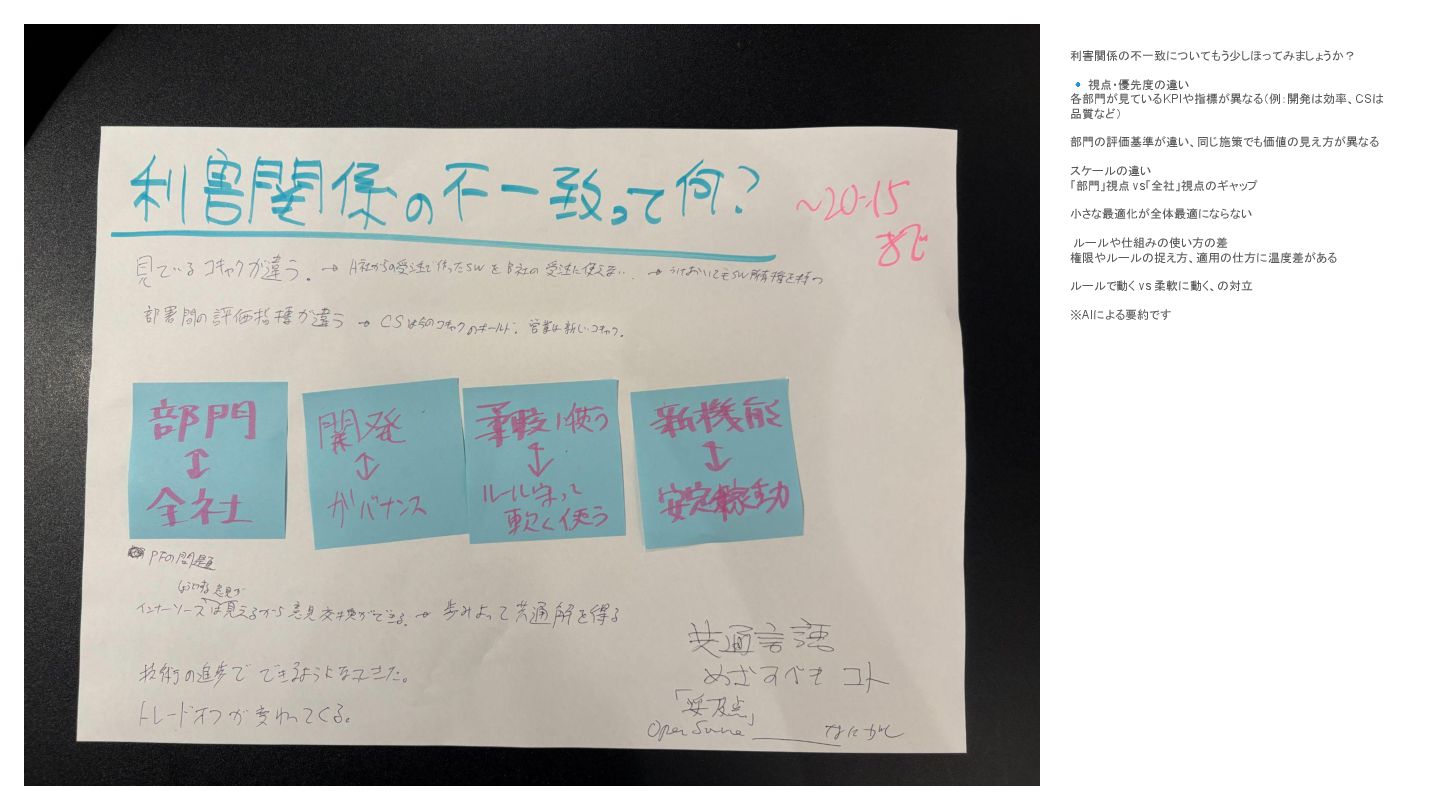 利害関係の不一致って何?
〜20:15
まで
見ているコキャクが違う。→ A社からの受注で作ったSWをB社の受注に使えない.. → うけおいでもSW所有権を持つ
部署間の評価指標が違う → CSは今のコキャクのホールド. 営業は新しいコキャク.
部門
↕
全社
開発
↕
ガバナンス
柔軟に使う
↕
ルール守って
軟く使う
新機能
↕
安定稼動
PFの問題
意見が
インナーソースは見えるから意見交換ができる. → 歩みよって共通解を得る
技術の進歩でできるようになってきた。
トレードオフが変わってくる。
共通言語
めざすべきコト
「妥及点」
Open Source なにがし
利害関係の不一致についてもう少しほってみましょうか？
🔹 視点・優先度の違い
各部門が見ているKPIや指標が異なる（例：開発は効率、CSは
品質など）
部門の評価基準が違い、同じ施策でも価値の見え方が異なる
スケールの違い
「部門」視点 vs「全社」視点のギャップ
小さな最適化が全体最適にならない
ルールや仕組みの使い方の差
権限やルールの捉え方、適用の仕方に温度差がある
ルールで動く vs 柔軟に動く、の対立
※AIによる要約です